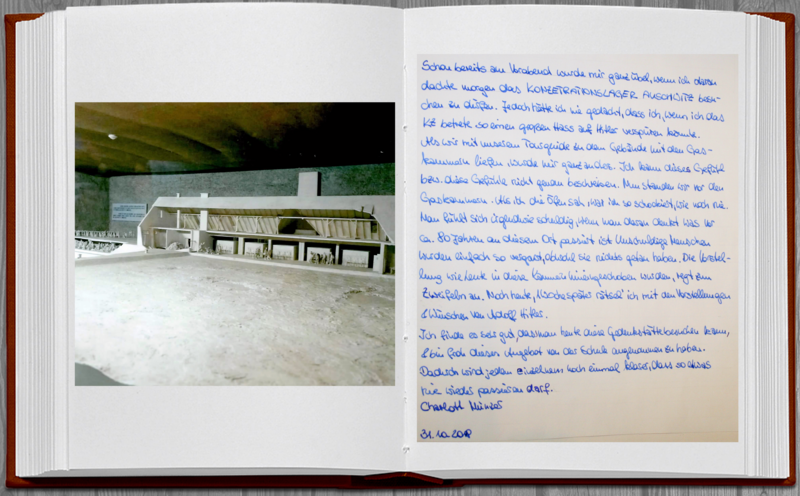 Schon bereits am Vorabend wurde mir ganz übel, wenn ich daran
dachte morgen das KONZETRATIONSLAGER AUSCHWITZ besu-
chen zu dürfen. Jedoch hätte ich nie gedacht, dass ich, wenn ich das
KZ betrete so einen großen Hass auf Hitler verspüren konnte.
Als wir mit unserem Tourguide zu dem Gebäude mit den Gas-
kammern liefen, wurde mir ganz anders. Ich kann dieses Gefühl
bzw. diese Gefühle nicht genau beschreiben. Nun standen wir vor den
Gaskammern. Als ich die Öfen sah, war ich so schockiert, wie noch nie.
Man fühlt sich irgendwie schuldig, wenn man daran denkt was vor
ca. 80 Jahren an diesem Ort passiert ist. Unschuldige Menschen
wurden einfach so vergast, obwohl sie nichts getan haben. Die Vorstel-
lung wie Leute in diese Kammern hineingeschoben wurden, regt zum
Zweifeln an. Noch heute, 1 Woche später rätsel' ich mit den Vorstellungen
& Wünschen von Adolf Hitler.
Ich finde es sehr gut, dass man heute diese Gedenkstätte besuchen kann,
& bin froh dieses Angebot von der Schule angenommen zu haben.
Dadurch wird jedem einzelnem noch einmal klarer, dass so etwas
nie wieder passieren darf.
31.10.